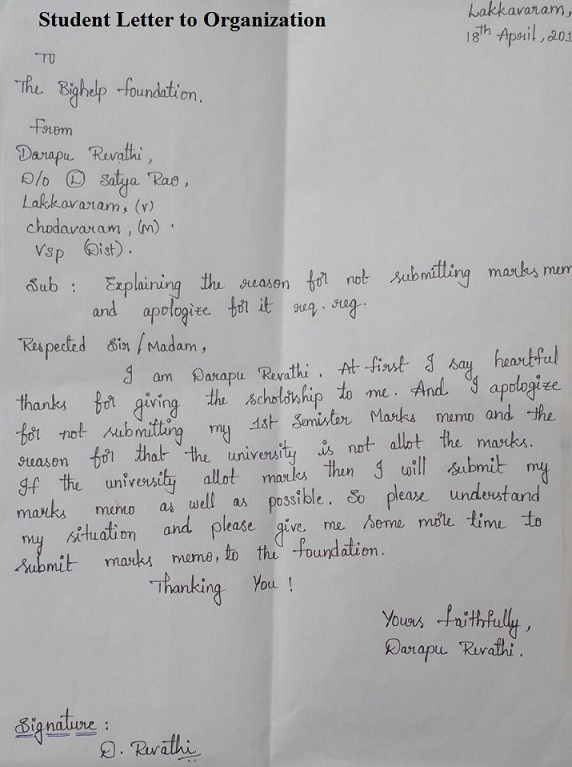 Student Letter to Organization
Lakkavaram,
18th April, 201
TO
The Bighelp foundation.
From
Darapu Revathi,
D/o (L) Satya Rao,
Lakkavaram, (v)
chodavaram, (m).
Vsp (Dist).
Sub : Explaining the reason for not submitting marks mem
and apologize for it req. reg.
Respected Sir / Madam,
I am Darapu Revathi. At first I say heartful
thanks for giving the scholorship to me. And I apologize
for not submitting my 1st Semister Marks memo and the
reason for that the university is not allot the marks.
If the university allot marks then I will submit my
marks memo as well as possible. So please understand
my situation and please give me some more time to
submit marks memo, to the foundation.
Thanking You !
Yours faithfully,
Darapu Revathi.
Signature :
D. Revathi